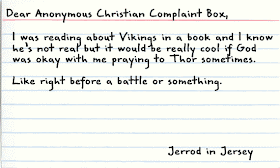 Dear Anonymous Christian Complaint Box,
I was reading about Vikings in a book and I know
he's not real but it would be really cool if God
was okay with me praying to Thor sometimes.
Like right before a battle or something.
Jerrod in Jersey